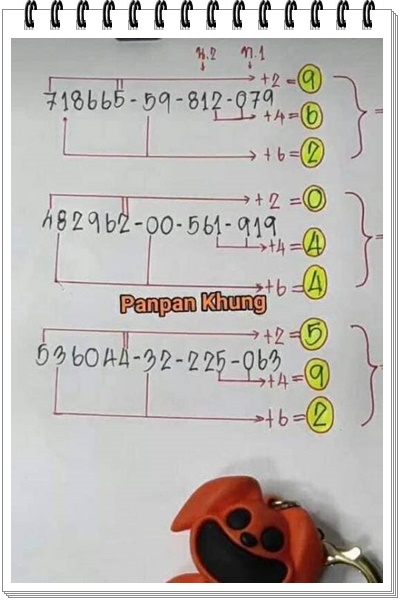 น.2 ท.1
+2 = 9
718665-59-812-079
+4 = 6
+6 = 2
+2 = 0
482962-00-561-919
+4 = 4
+6 = 4
Panpan Khung
+2 = 5
536044-32-225-063
+4 = 9
+6 = 2